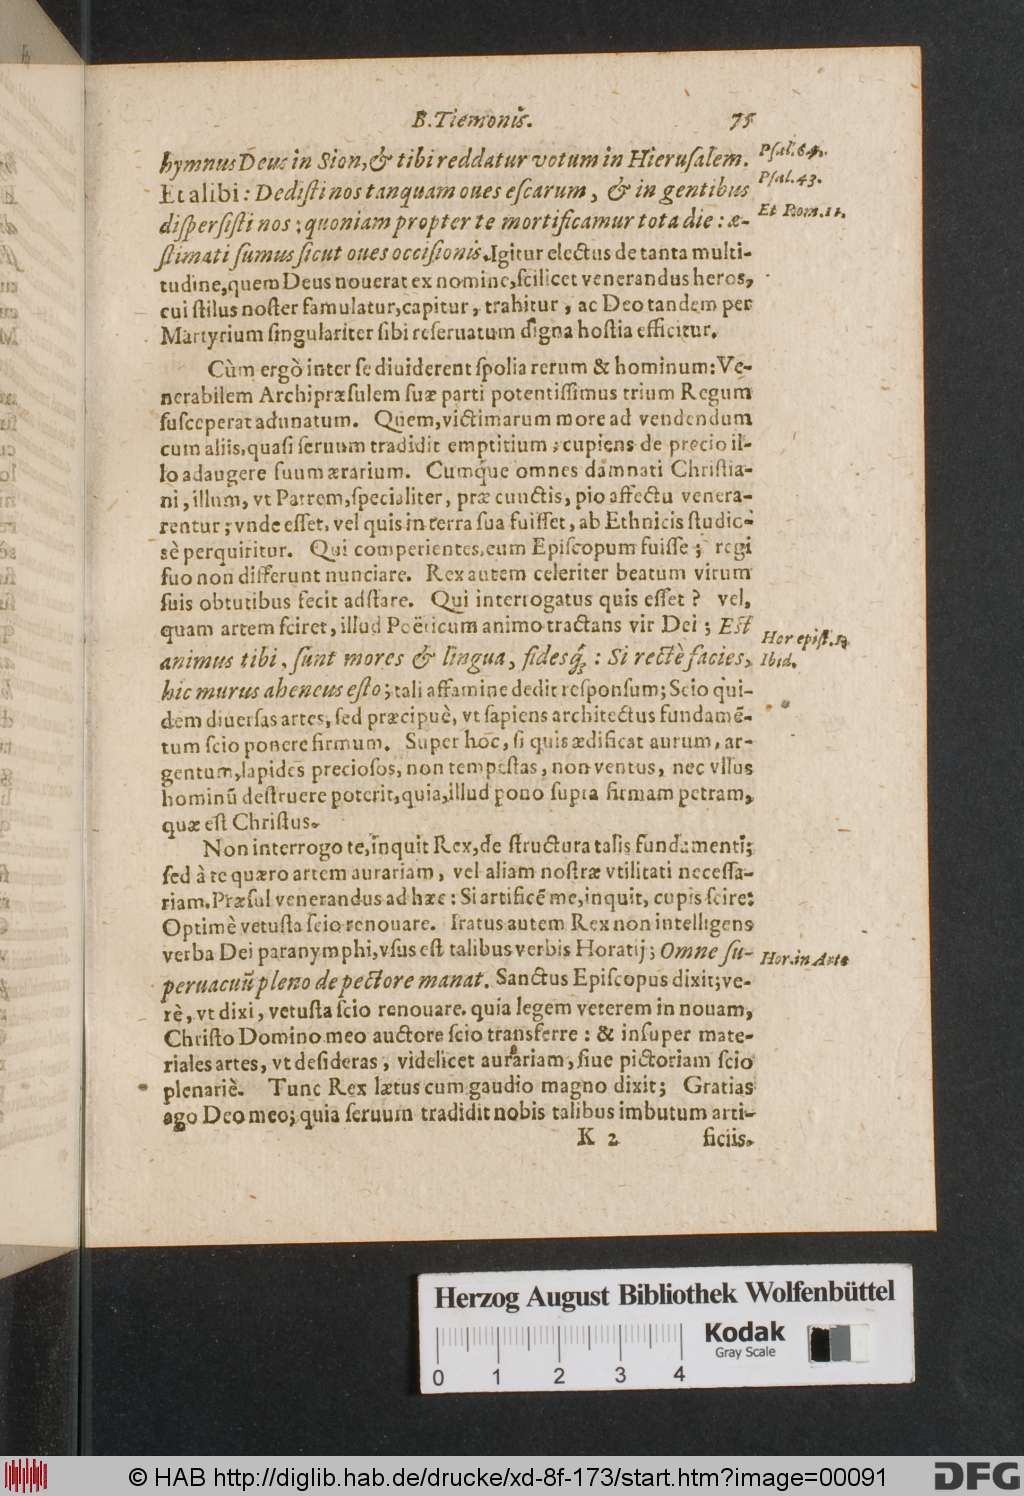 B. Tiemonis. 75
hymnus Deus in Sion, & tibi reddatur votum in Hierusalem. Psal. 64.
Et alibi: Dedisti nos tanquam oues escarum, & in gentibus Psal. 43.
dispersisti nos; quoniam propter te mortificamur tota die: æ- Et Rom. 11.
stimati sumus sicut oues occisionis. Igitur electus de tanta multi-
tudine, quem Deus nouerat ex nomine, scilicet venerandus heros,
cui stilus noster famulatur, capitur, trahitur, ac Deo tandem per
Martyrium singulariter sibi reseruatum digna hostia efficitur.
Cùm ergò inter se diuiderent spolia rerum & hominum: Ve-
nerabilem Archipræsulem suæ parti potentissimus trium Regum
susceperat adunatum. Quem, victimarum more ad vendendum
cum aliis, quasi seruum tradidit emptitium; cupiens de precio il-
lo adaugere suum ærarium. Cumq́ue omnes damnati Christia-
ni, illum, vt Patrem, specialiter, præ cunctis, pio affectu venera-
rentur; vnde esset, vel quis in terra sua fuisset, ab Ethnicis studio-
sè perquiritur. Qui comperientes, eum Episcopum fuisse; regi
suo non differunt nunciare. Rex autem celeriter beatum virum
suis obtutibus fecit adstare. Qui interrogatus quis esset? vel,
quam artem sciret, illud Poëticum animo tractans vir Dei; Est
animus tibi, sunt mores & lingua, fidesq́; : Si rectè facies, Hor epist. 1.
hic murus aheneus esto; tali affamine dedit responsum; Scio qui- Ibid.
dem diuersas artes, sed præcipuè, vt sapiens architectus fundamē-
tum scio ponere firmum. Super hoc, si quis ædificat aurum, ar-
gentum, lapides preciosos, non tempestas, non ventus, nec vllus
hominū destruere poterit, quia, illud pono supra firmam petram,
quæ est Christus.
Non interrogo te, inquit Rex, de structura talis fundamenti;
sed à te quæro artem aurariam, vel aliam nostræ vtilitati necessa-
riam. Præsul venerandus ad hæc: Si artificē me, inquit, cupis scire:
Optimè vetusta scio renouare. Iratus autem Rex non intelligens
verba Dei paranymphi, vsus est talibus verbis Horatij; Omne su- Hor. in Arte
peruacuū pleno de pectore manat. Sanctus Episcopus dixit; ve-
rè, vt dixi, vetusta scio renouare. quia legem veterem in nouam,
Christo Domino meo auctore scio transferre: & insuper mate-
riales artes, vt desideras, videlicet aurariam, siue pictoriam scio
plenariè. Tunc Rex lætus cum gaudio magno dixit; Gratias
ago Deo meo; quia seruum tradidit nobis talibus imbutum arti-
K 2 ficiis.
Herzog August Bibliothek Wolfenbüttel
Kodak
Gray Scale
0 1 2 3 4
© HAB http://diglib.hab.de/drucke/xd-8f-173/start.htm?image=00091
DFG